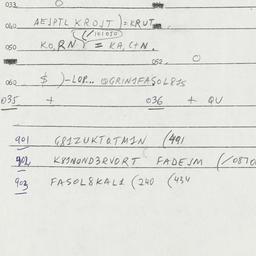 033
040 AEJPTL KROJT )=KRUT
(/101010)
050 KO,RN ) = KA,C+N.
052.
060 $ )-LOP... @GRIN1FASOL815
035 + 036 + QU
901 G81ZUKTOTM1N (491
902 K81NOND3RVORT FADEJM (/0870
903 FASOL8KAL1 (240 (434